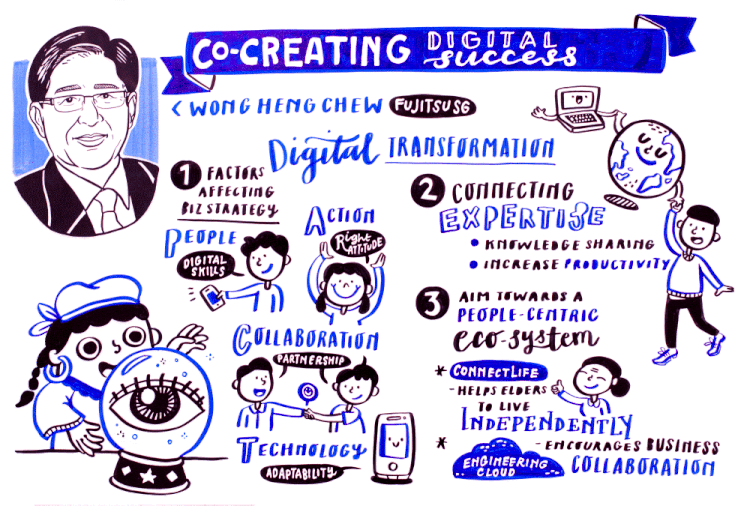 CO-CREATING DIGITAL SUCCESS
< WONG HENG CHEW FUJITSU SG
Digital TRANSFORMATION
1 FACTORS
AFFECTING
BIZ STRATEGY
PEOPLE
DIGITAL
SKILLS
ACTION
Right
ATTITUDE
COLLABORATION
PARTNERSHIP
TECHNOLOGY
ADAPTABILITY
2 CONNECTING
EXPERTISE
• KNOWLEDGE SHARING
• INCREASE PRODUCTIVITY
3 AIM TOWARDS A
PEOPLE-CENTRIC
eco-system
* CONNECTLIFE
- HELPS ELDERS
TO LIVE
INDEPENDENTLY
* ENGINEERING
CLOUD
- ENCOURAGES BUSINESS
COLLABORATION